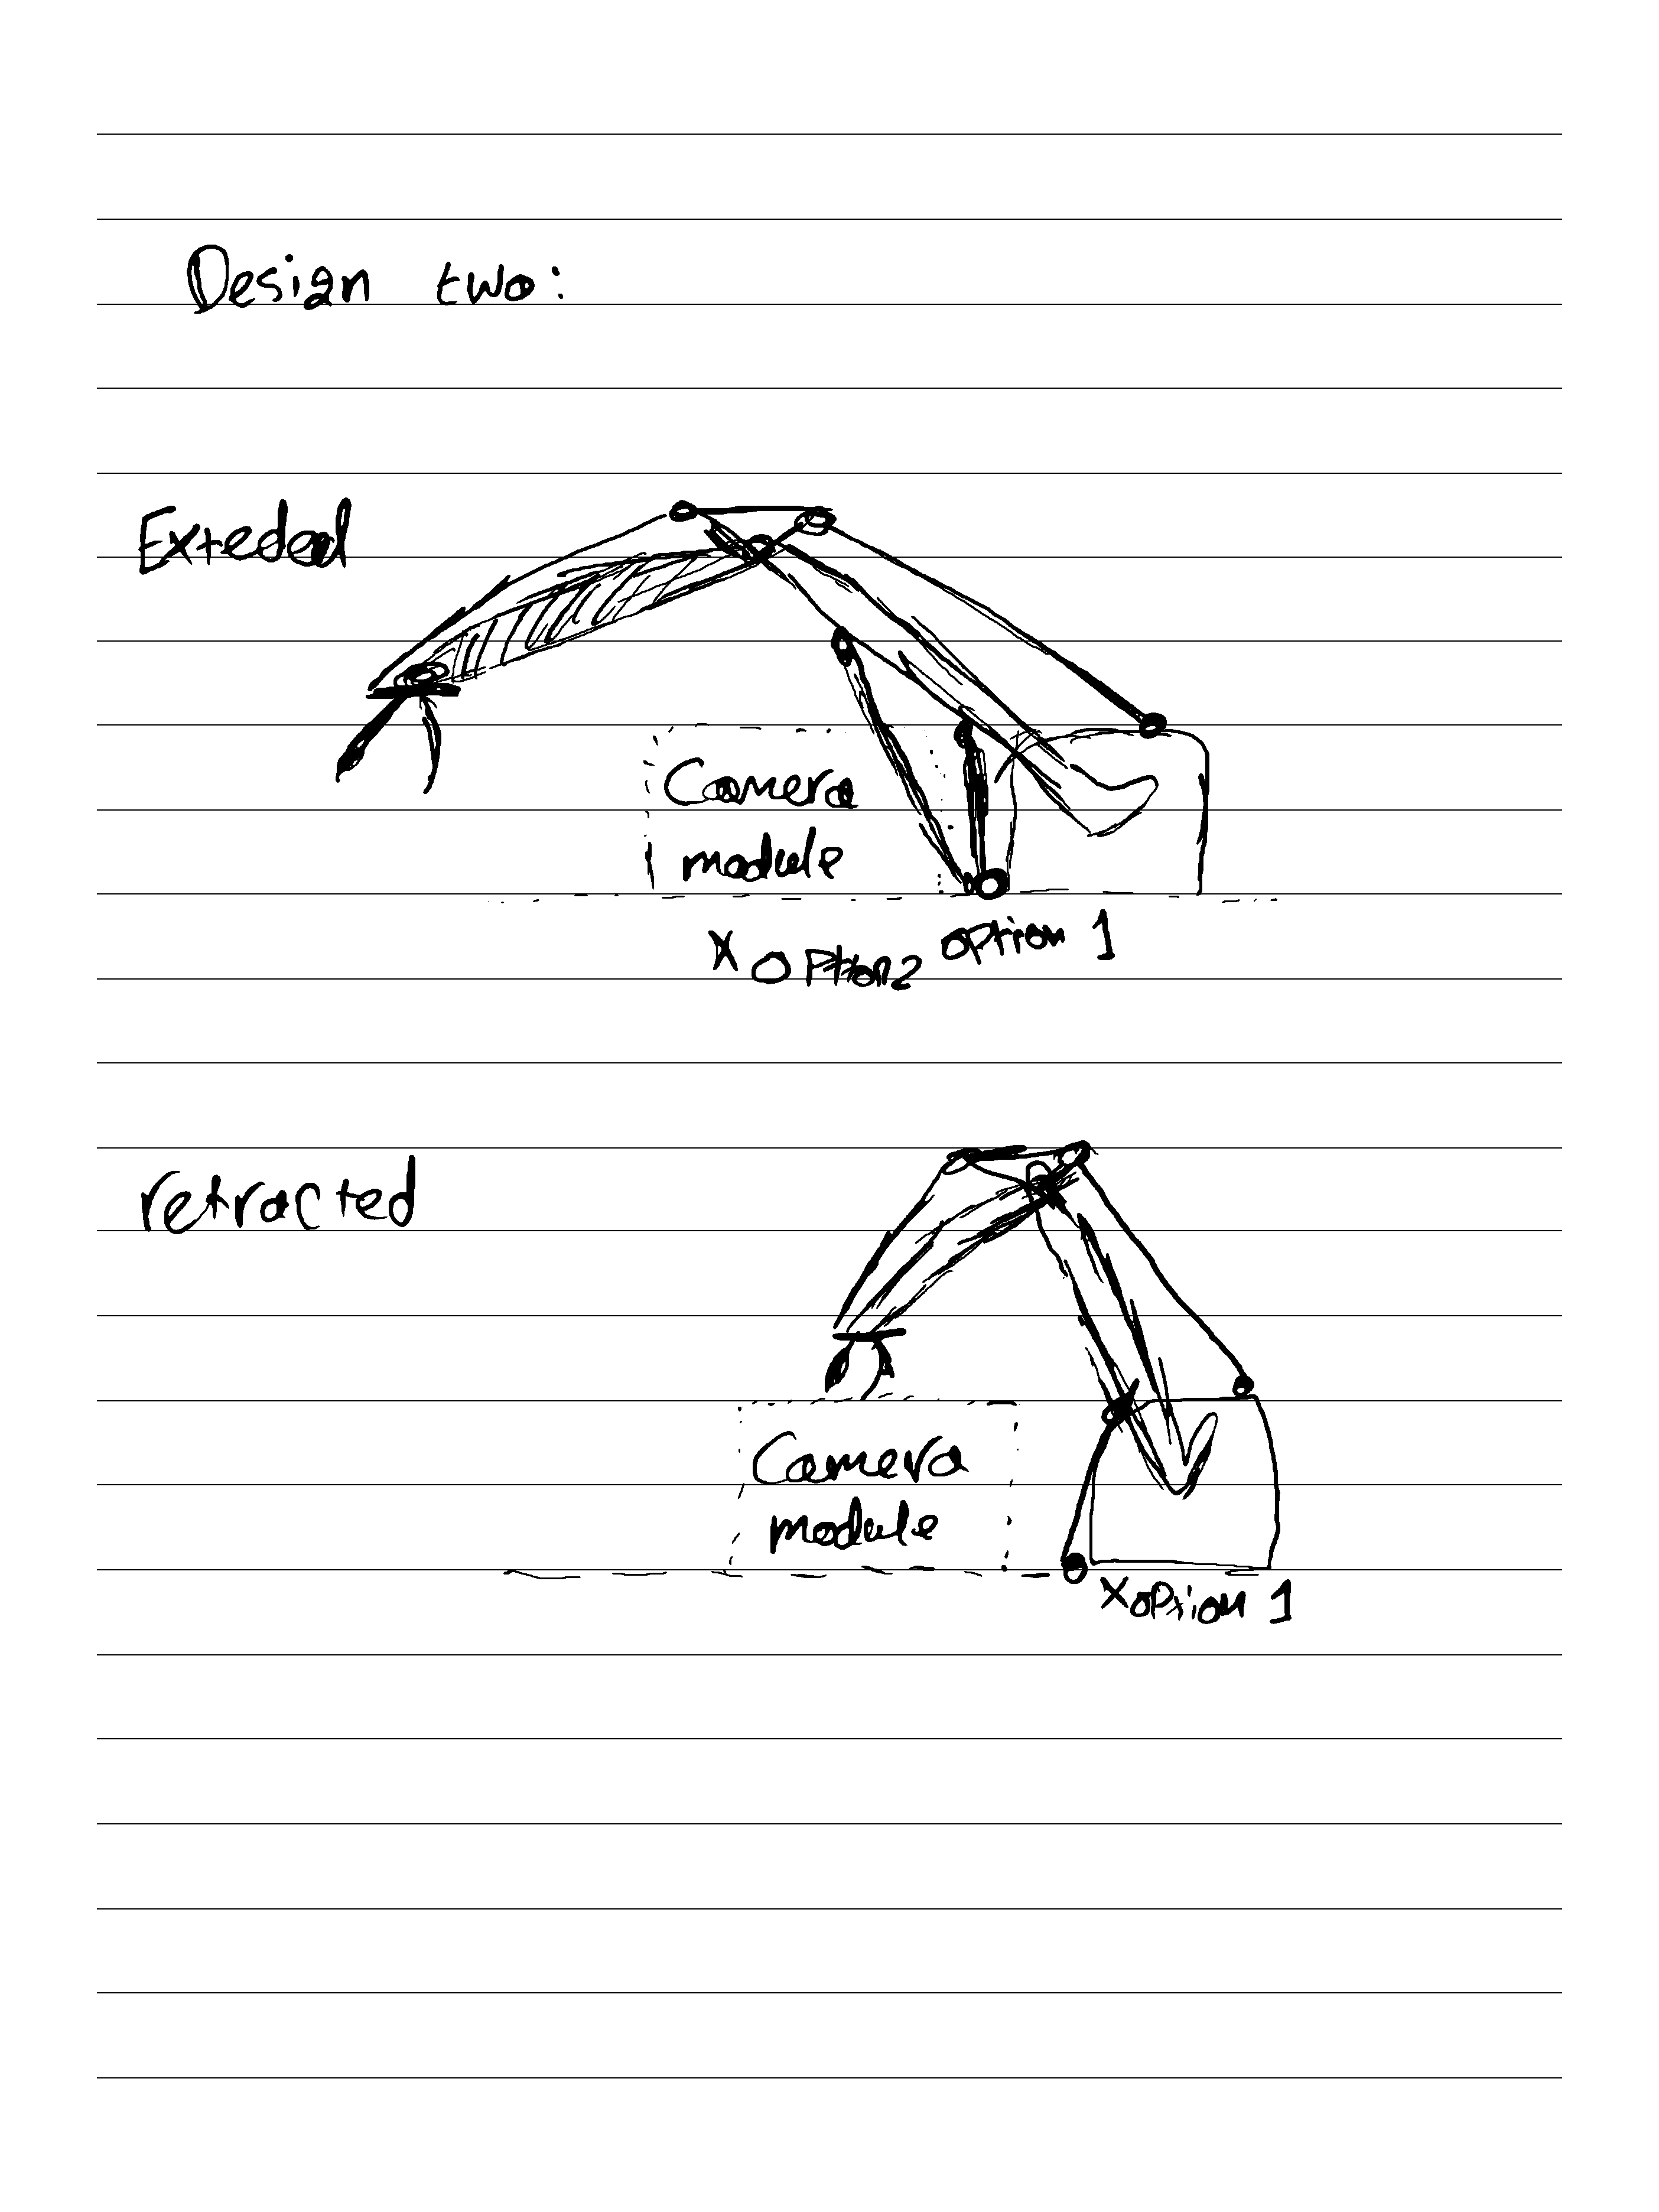 Design two:
Exteded
Camera
module
X Option2 option 1
retracted
Camera
module
X option 1